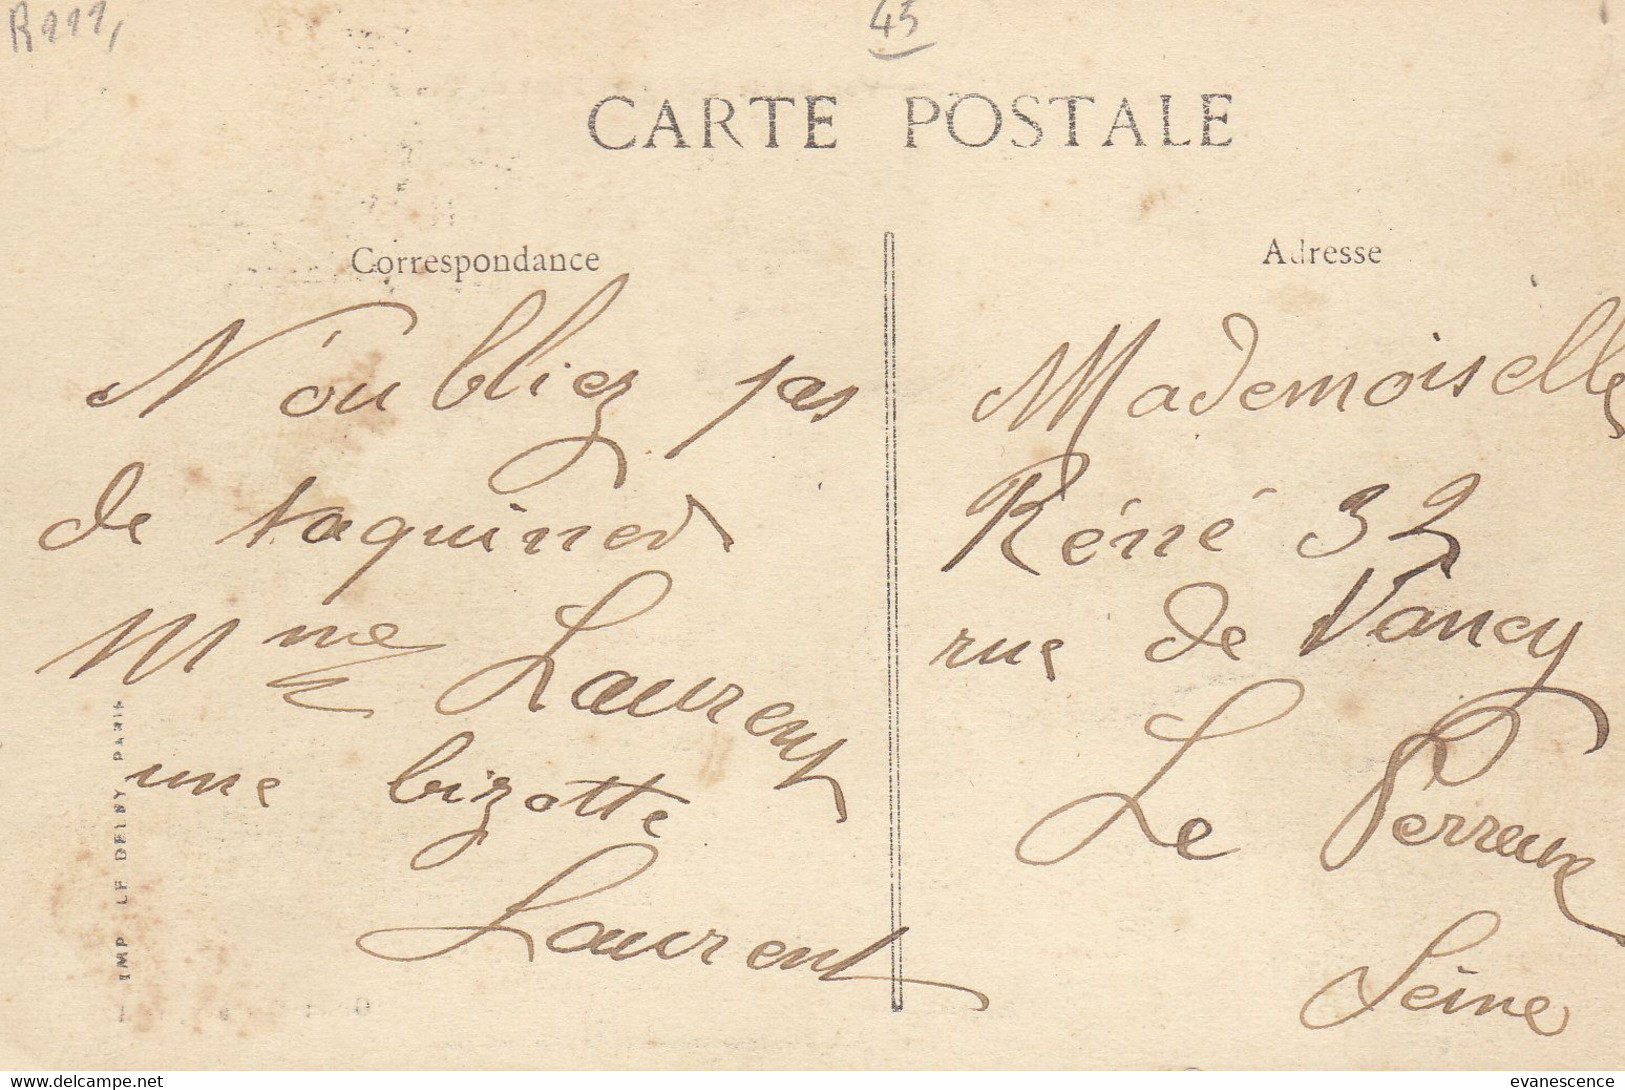 R111,
45
CARTE POSTALE
Correspondance
N'oubliez pas
de taquiner
Mme Laurent
une bizotte
Laurent
Adresse
Mademoiselle
Réné 32
rue de Nancy
Le Perreux
Seine
IMP LE DELEY PARIS
evanescence